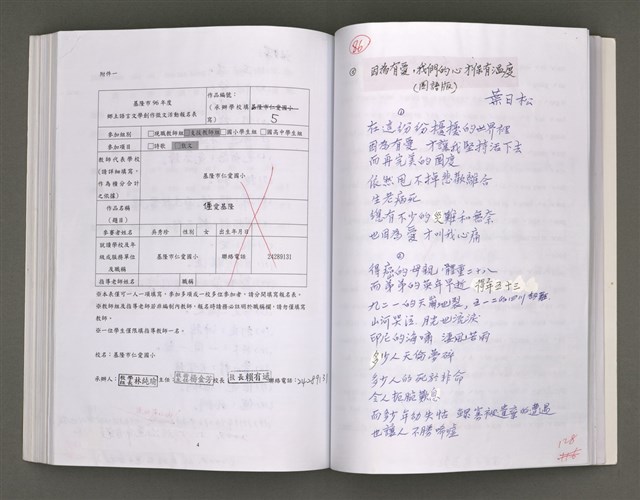 附件一
基隆市 96 年度
鄉土語言文學創作徵文活動報名表
作品編號：
（承辦學校填寫）
基隆市仁愛國小
5
參加組別
□現職教師組 □支援教師組 □國小學生組 □國高中學生組
參加項目
□詩歌 □散文
教師代表學校
（請詳細填寫，
作為積分合計
之依據）
基隆市仁愛國小
作品名稱
（題目）
偃愛基隆
參賽者姓名
吳秀珍
性別
女
出生年月日
就讀學校及年
級或服務單位
及職稱
基隆市仁愛國小
聯絡電話
24289131
指導老師姓名
職稱
※本表僅可一人一項填寫，參加多項或一校多位參加者，請分開填寫報名表。
※教師組及指導老師若非編制內教師，報名時請務必註明於職稱欄，請勿僅填寫教師。
※一位學生僅限填指導教師一名。
校名：基隆市仁愛國小
承辦人：
林純瑜
主任
楊金芳
校長
校長賴有延
聯絡電話：24289131
86
因為有愛，我們的心才保有溫度
（國語版）
葉日松
①
在這紛紛擾擾的世界裡
因為有愛 才讓我堅持活下去
而再完美的國度
依然甩不掉悲歡離合
生老病死
總有不少的災難和無奈
也因為愛 才叫我心痛
得癌的母親，體重二十八
而弟弟的英年早逝 得年五十三
九二一的天崩地裂，五一二的四川
山河哭泣 月光也流淚
印尼的海嘯 淒風苦雨
多少人天倫夢碎
多少人的死於非命
令人扼腕歎息
而多少年幼失怙
也讓人不勝唏噓
128